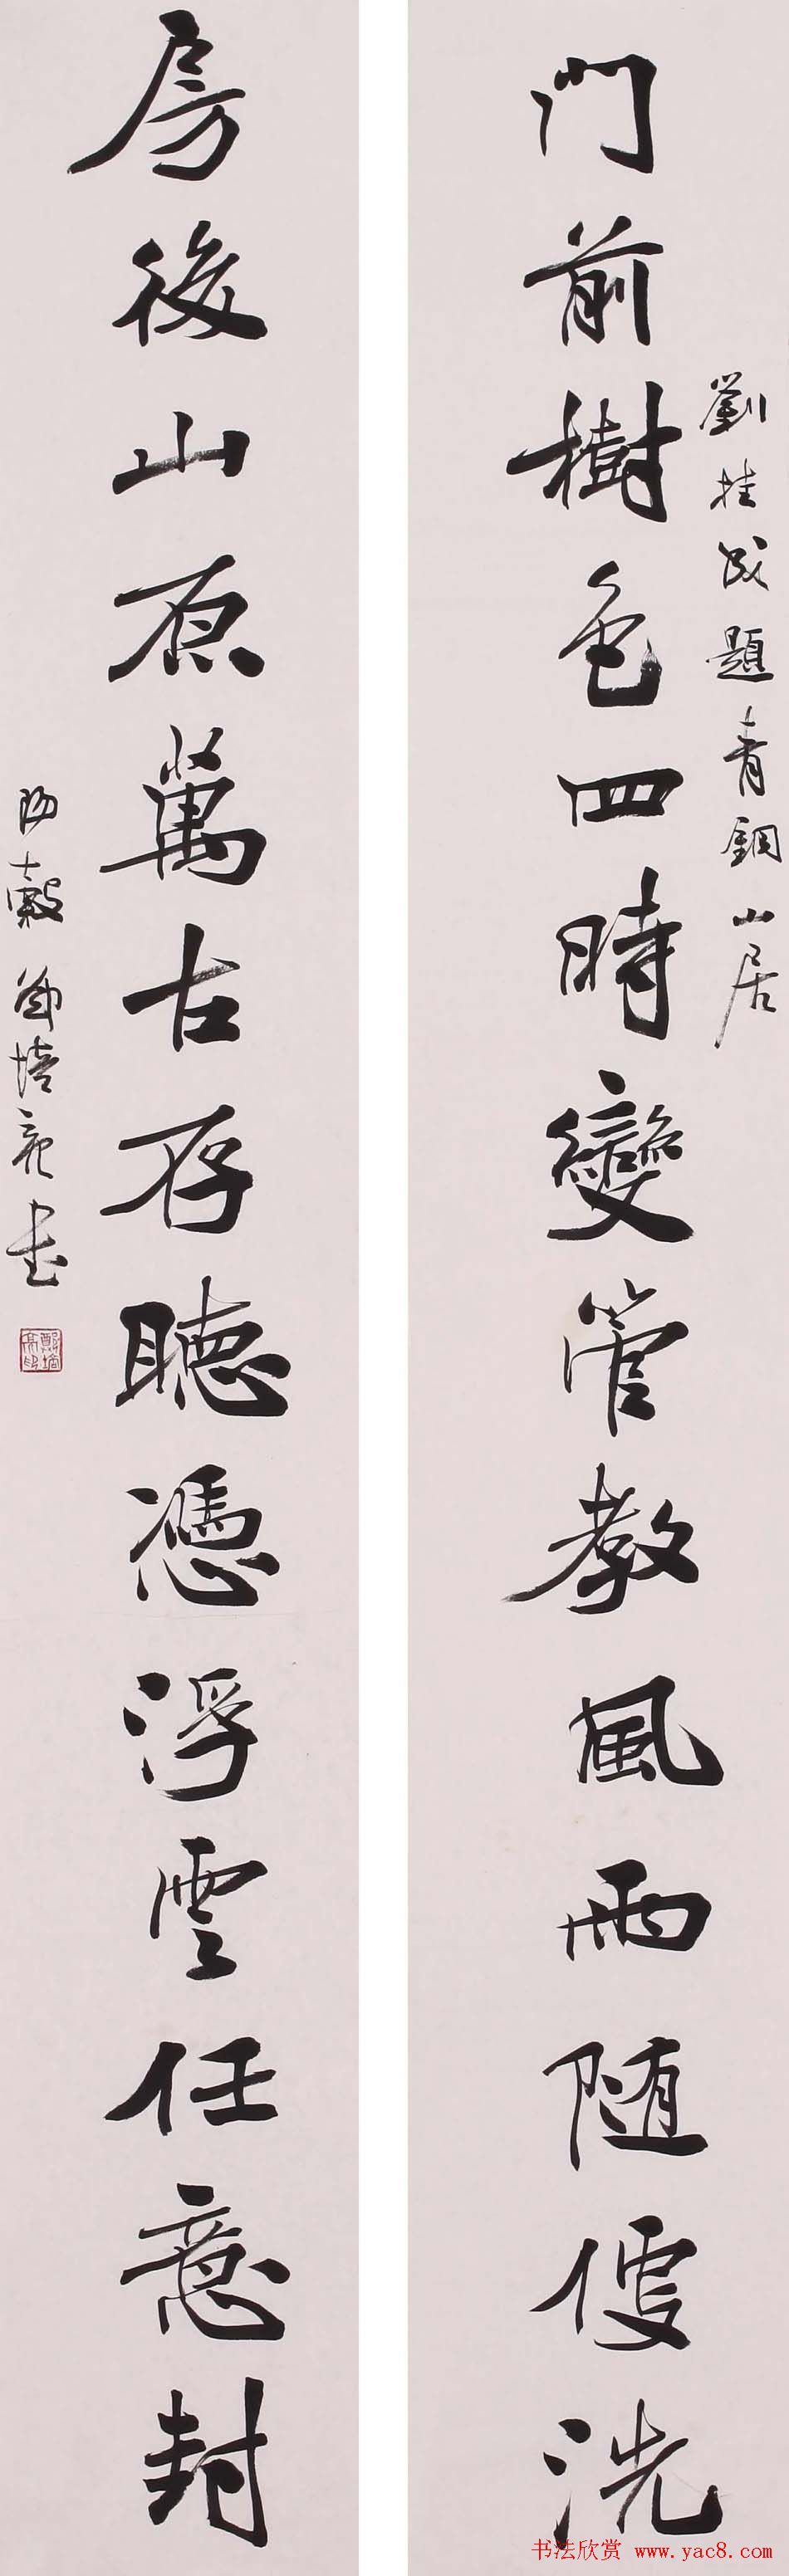 劉桂成題青銅山居
門前樹色四時變管教風雨随便洗
房後山原萬古存聽憑浮雲任意封
陽穀鄭培亮書
书法欣赏 www.yac8.com